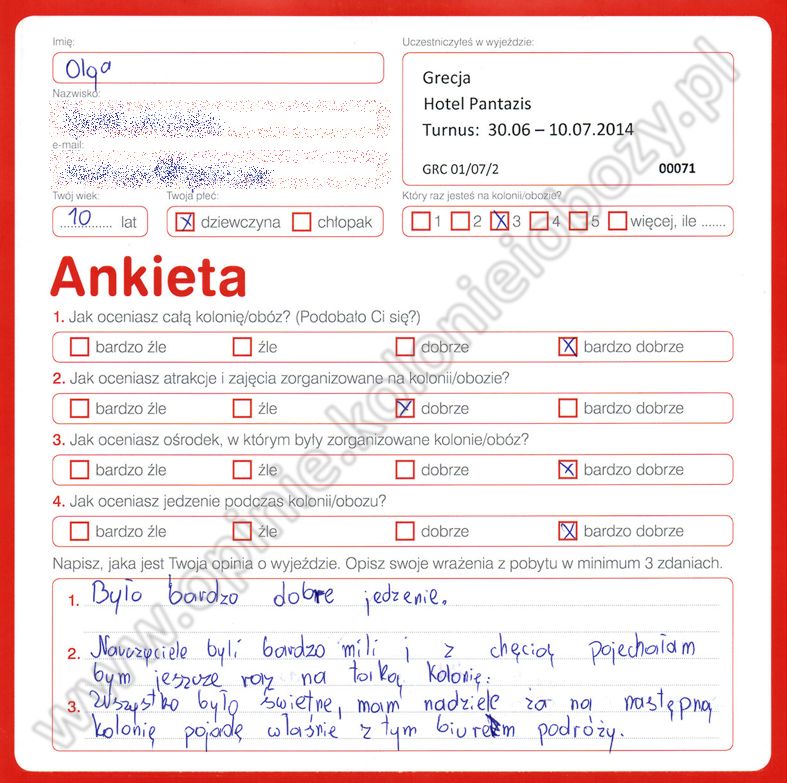 Imię:
Olga
Nazwisko:
e-mail:
Twój wiek:
10 lat
Twoja płeć:
dziewczyna chłopak
Uczestniczyłeś w wyjeździe:
Grecja
Hotel Pantazis
Turnus: 30.06 – 10.07.2014
GRC 01/07/2 00071
Który raz jesteś na kolonii/obozie?
1 2 3 4 5 więcej, ile .......
Ankieta
1. Jak oceniasz całą kolonię/obóz? (Podobało Ci się?)
bardzo źle źle dobrze bardzo dobrze
2. Jak oceniasz atrakcje i zajęcia zorganizowane na kolonii/obozie?
bardzo źle źle dobrze bardzo dobrze
3. Jak oceniasz ośrodek, w którym były zorganizowane kolonie/obóz?
bardzo źle źle dobrze bardzo dobrze
4. Jak oceniasz jedzenie podczas kolonii/obozu?
bardzo źle źle dobrze bardzo dobrze
Napisz, jaka jest Twoja opinia o wyjeździe. Opisz swoje wrażenia z pobytu w minimum 3 zdaniach.
1. Było bardzo dobre jedzenie.
2. Nauczyciele byli bardzo mili i z chęcią pojechałam
bym jeszcze raz na taką kolonię.
3. Wszystko było świetne, mam nadzieję że na następną
kolonię pojadę właśnie z tym biurem podróży.
www.opinie.kolonieiobozy.pl